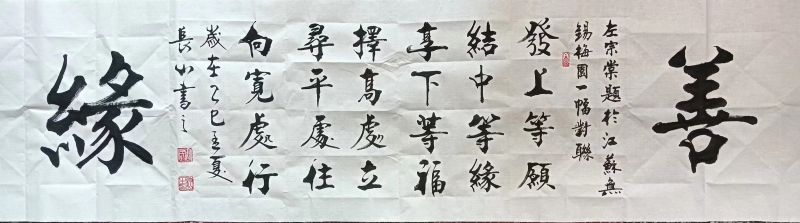 善
左宗棠題於江蘇無
錫梅園一幅對聯
發上等願
結中等緣
享下等福
擇高處立
尋平處住
向寬處行
歲在乙巳孟夏
長小書之
緣